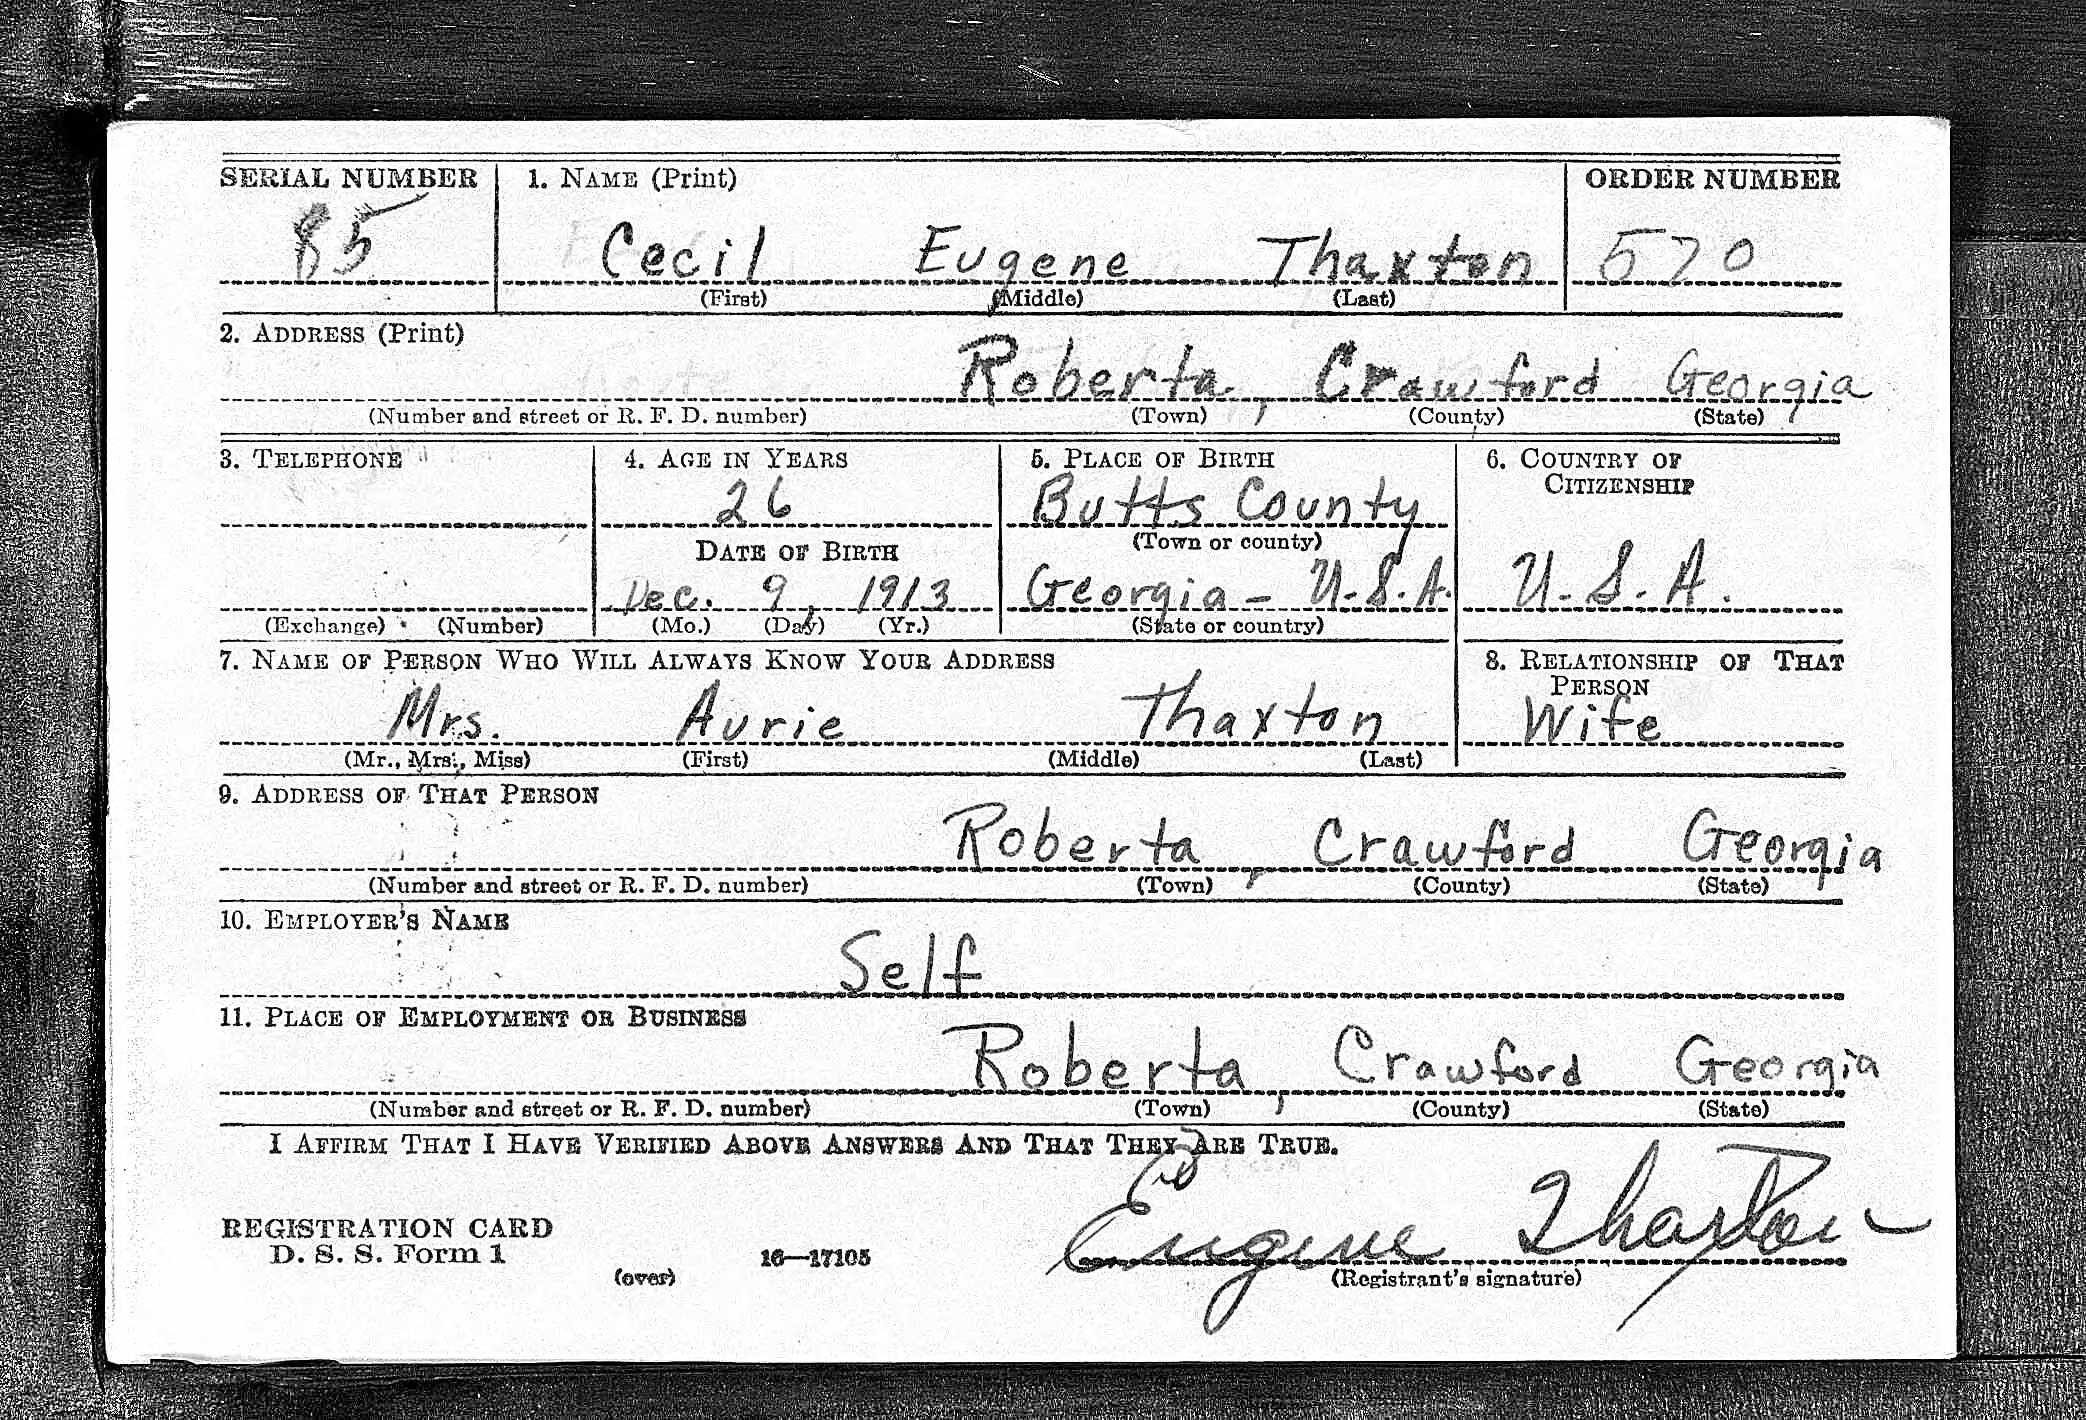 SERIAL NUMBER 1. NAME (Print) ORDER NUMBER
85 Cecil Eugene Thaxton 570
(First) (Middle) (Last)
2. ADDRESS (Print)
Roberta, Crawford Georgia
(Number and street or R. F. D. number) (Town) (County) (State)
3. TELEPHONE 4. AGE IN YEARS 5. PLACE OF BIRTH 6. COUNTRY OF
CITIZENSHIP
26 Butts County
DATE OF BIRTH (Town or county)
Dec. 9, 1913 Georgia - U.S.A. U.S.A.
(Exchange) (Number) (Mo.) (Day) (Yr.) (State or country)
7. NAME OF PERSON WHO WILL ALWAYS KNOW YOUR ADDRESS 8. RELATIONSHIP OF THAT
PERSON
Mrs. Aurie Thaxton Wife
(Mr., Mrs., Miss) (First) (Middle) (Last)
9. ADDRESS OF THAT PERSON
Roberta, Crawford Georgia
(Number and street or R. F. D. number) (Town) (County) (State)
10. EMPLOYER'S NAME
Self
11. PLACE OF EMPLOYMENT OR BUSINESS
Roberta, Crawford Georgia
(Number and street or R. F. D. number) (Town) (County) (State)
I AFFIRM THAT I HAVE VERIFIED ABOVE ANSWERS AND THAT THEY ARE TRUE.
REGISTRATION CARD
D. S. S. Form 1 16—17105 Eugene Thaxton
(over) (Registrant's signature)